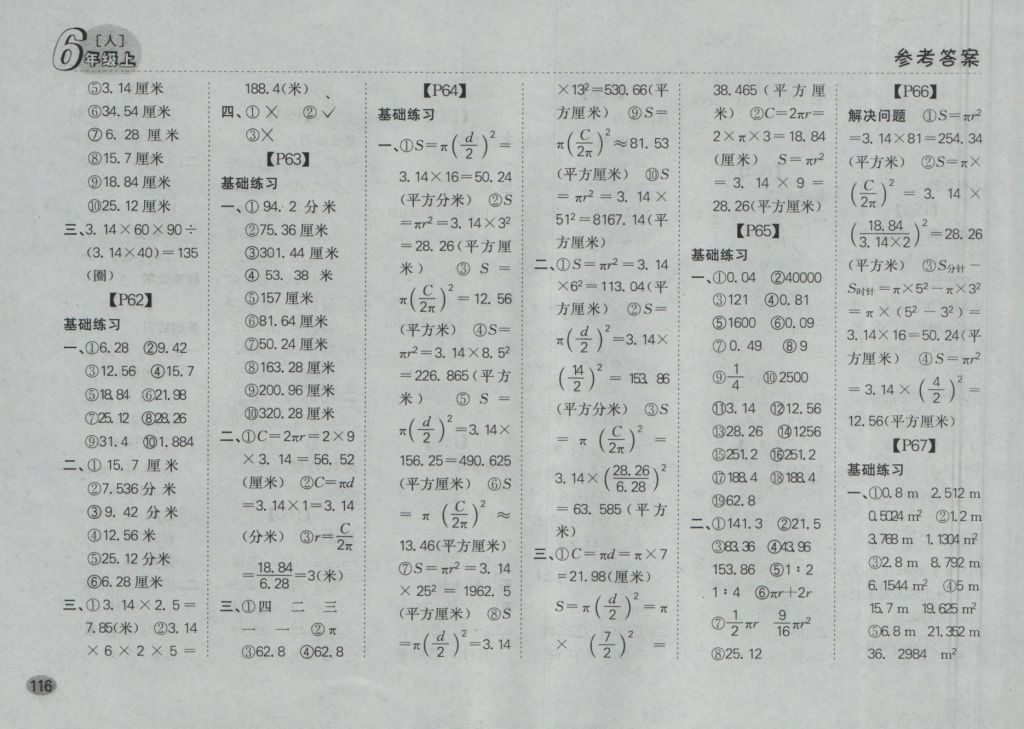 6 [人]
年级上
参考答案
⑤3. 14 厘米
⑥34.54 厘米
⑦6. 28 厘米
⑧15.7 厘米
⑨18.84 厘米
⑩25.12 厘米
三、3. 14×60×90÷
(3. 14×40)=135
(圈)
【P62】
基础练习
一、①6.28 ②9.42
③12.56 ④15.7
⑤18.84 ⑥21.98
⑦25.12 ⑧28.26
⑨31.4 ⑩1.884
二、① 15. 7 厘米
②7.536分 米
③ 9. 42 分 米
④12.56米
⑤25.12分米
⑥6.28 厘米
三、①3. 14×2. 5=
7.85(米) ②3.14
×6×2×5=
188.4(米)
四、①× ②✓
③×
【P63】
基础练习
一、①94. 2 分米
②75.36 厘米
③301.44 厘米
④ 53. 38 米
⑤157 厘米
⑥81.64 厘米
⑦50.24 厘米
⑧163.28 厘米
⑨200.96 厘米
⑩320.28 厘米
二、①C=2πr=2×9
×3. 14=56. 52
(厘米) ②C=πd
=3.14×1=3.14
(分米) ③r=C/2π
=18.84/6.28=3(米)
三、①四 二 三
一 一 ②π
③62.8 ④62.8
【P64】
基础练习
一、①S=π(d/2)²=
3.14×16=50.24
(平方分米) ②S
=πr²=3.14×3²
=28.26(平方厘
米) ③ S =
π(C/2π)²=12.56
(平方米) ④S=
πr²=3.14×8.5²
=226.865(平方
米) ⑤ S =
π(d/2)²=3.14×
156.25=490.625
(平方厘米) ⑥S
= π (C/2π)² ≈
13.46(平方厘米)
⑦S=πr²=3. 14
×25² = 1962. 5
(平方厘米) ⑧S
=π(d/2)²=3.14
×13²=530.66(平
方厘米) ⑨S=
π(C/2π)²≈81.53
(平方厘米) ⑩S
= πr² = 3. 14 ×
51²=8167.14(平
方厘米)
二、①S=πr²=3. 14
×6²=113.04(平
方厘米) ②S=
π(d/2)²=3.14×
(14/2)² = 153. 86
(平方分米) ③S
= π (C/2π)² =
3.14×(28.26/6.28)²
=63. 585(平方
米)
三、①C=πd=π×7
=21.98(厘米)
S=π(d/2)²=π
× (7/2)² =
38.465(平方厘
米) ②C=2πr=
2×π×3=18.84
(厘米) S=πr²
= 3. 14 × 9 =
28.26(平方厘米)
【P65】
基础练习
一、①0.04 ②40000
③121 ④0.81
⑤1600 ⑥0.09
⑦0. 49 ⑧9
⑨1/4 ⑩2500
⑪3.14 ⑫12.56
⑬28.26 ⑭1256
⑮251.2 ⑯251.2
⑰188.4 ⑱188.4
⑲62.8
二、①141.3 ②21.5
③83.36 ④43.96
153.86 ⑤1∶2
1∶4 ⑥πr+2r
⑦1/2πr 9/16πr²
⑧25.12
【P66】
解决问题 ①S=πr²
=3.14×81=254.34
(平方米) ②S=π×
(C/2π)² = 3. 14 ×
(18.84/3.14×2)²=28.26
(平方米) ③S分针-
S时针=π×5²-π×3²
= π × (5² - 3²) =
3.14×16=50.24(平
方厘米) ④S=πr²
=3.14×(4/2)²=
12.56(平方厘米)
【P67】
基础练习
一、①0.8 m 2.512 m
0.5024 m² ②1.2 m
3.768 m 1.1304 m²
③2.8 m 8.792 m
6.1544 m² ④5 m
15.7 m 19.625 m²
⑤6.8 m 21.352 m
36. 2984 m²
116